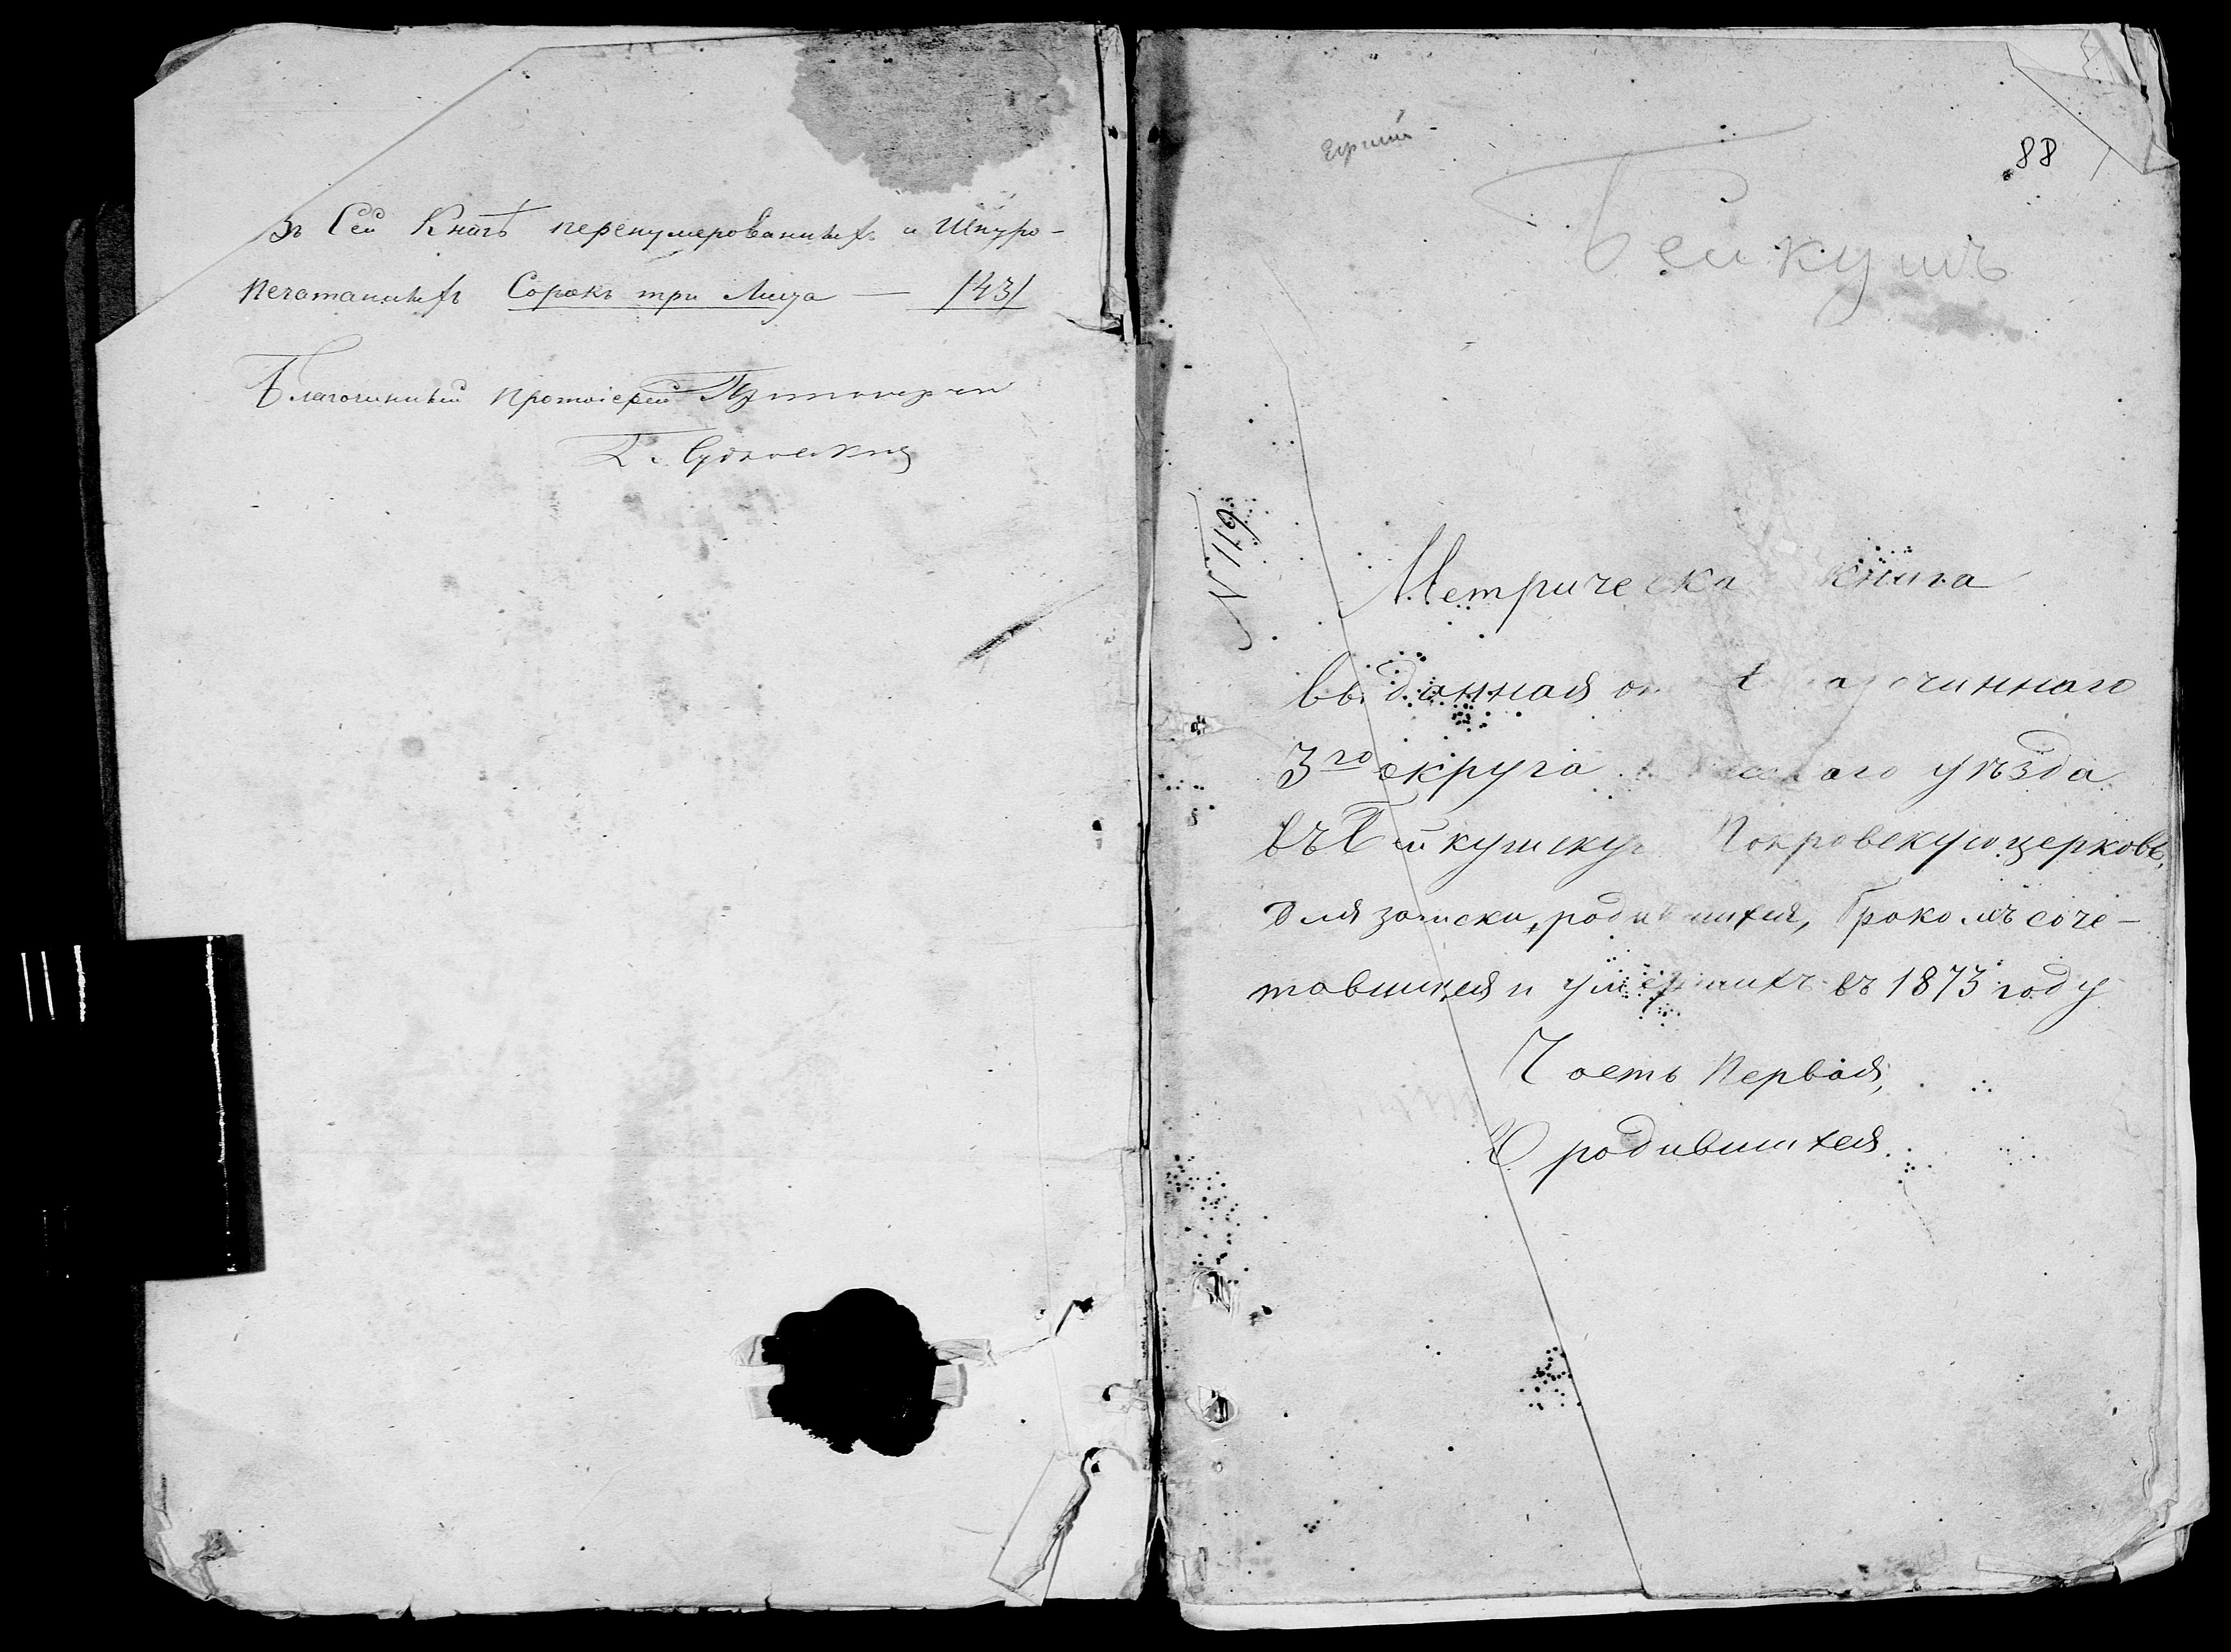 Въ сей Книгѣ перенумерованныхъ и Шнуро-
печатанныхъ Сорокъ три Листа — /43/
Благочинный Протоіерей
88
Бейкушъ
N 119
Метрическа книга
выданная о чиннаго
3го округа аго уѣзда
въ Бейкушскую Покровскую церковь,
для записки, родившихся, бракомъ соче-
тавшихся и умершихъ въ 1873 году
Часть Первая,
О родившихся.